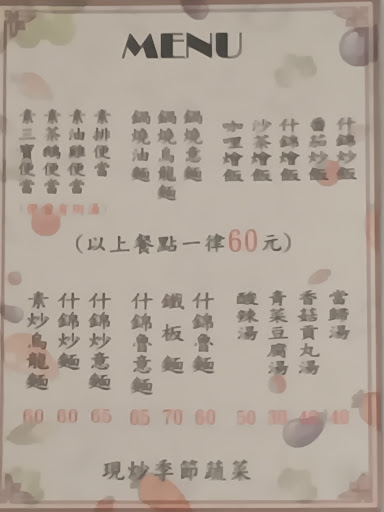 MENU
什錦炒飯
番茄炒飯
什錦燴飯
沙茶燴飯
咖哩燴飯
鍋燒意麵
鍋燒烏龍麵
鍋燒油麵
素排便當
素油雞便當
素茶鵝便當
素三寶便當
(便當有附湯)
(以上餐點一律60元)
當歸湯 40
香菇貢丸湯 40
青菜豆腐湯 30
酸辣湯 50
什錦魯麵 60
鐵板麵 70
什錦魯意麵 65
什錦炒意麵 65
什錦炒麵 60
素炒烏龍麵 60
現炒季節蔬菜